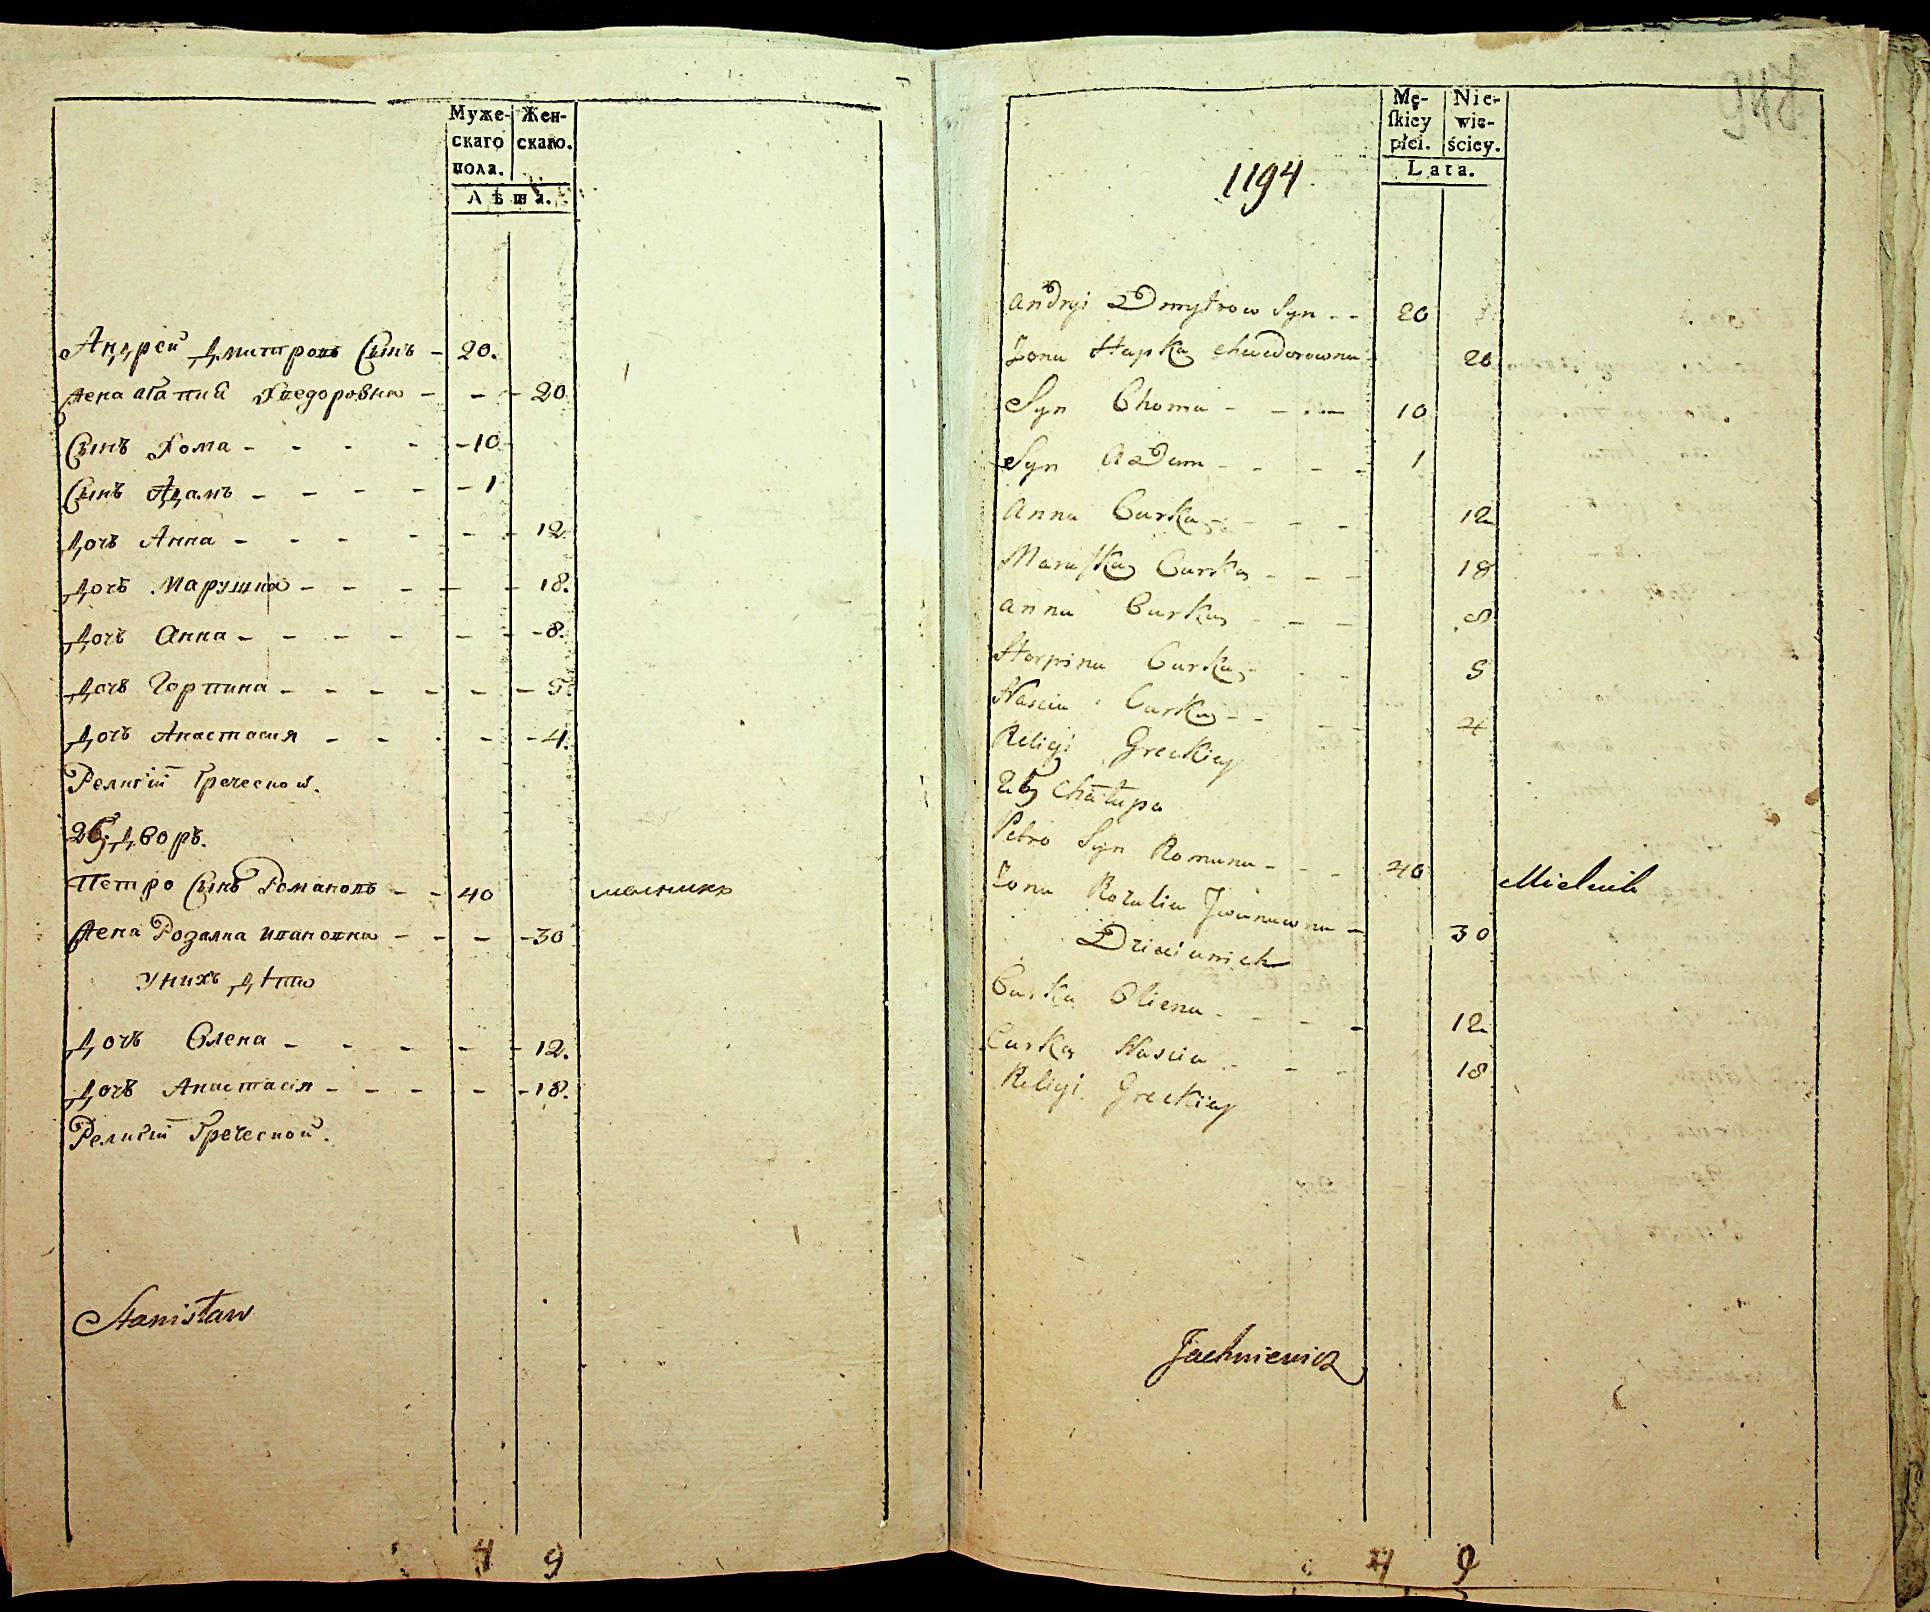 Муже-
скаго
пола.
Жен-
скаго.
Лѣта.
Андрей Дмитровъ Сынъ - 20.
Жена Гапка Хведоровна - - - 20
Сынъ Хома - - - - 10
Сынъ Адамъ - - - - 1
Дочь Анна - - - - - 12
Дочь Марушка - - - - - 18.
Дочь Анна - - - - - - 8.
Дочь Горпина - - - - - - 5.
Дочь Анастасия - - - - 4.
Религіи Греческой.
26, Дворъ.
Петро Сынъ Романовъ - - 40 мельникъ
Жена Розалиа Ивановна - - - 30
У нихъ Дѣти
Дочь Олена - - - - - 12.
Дочь Анастасія - - - - - 18.
Религіи Греческой.
Stanisław
4 9
Mę-
skiey
płci.
Nie-
wie-
ściey.
Lata.
1194
Andryi Dmytrow Syn - - 20
Zona Hapka Chwedorowna 20
Syn Choma - - - - 10
Syn Adam - - - - 1
Anna Curka - - - - 12
Maruszka Curka - - - 18
Anna Curka - - - 8
Horpina Curka - - - 5
Nascia Curka - - - - 4
Religi Greckiey
26, Chałupa
Petro Syn Romana - - - 40 Mielnik
Zona Rozalia Jwanowna - 30
Dzieci u nich
Curka Oliena - - - - 12
Curka Nascia - - - 18
Religi Greckiey
Jachniewicz
4 9